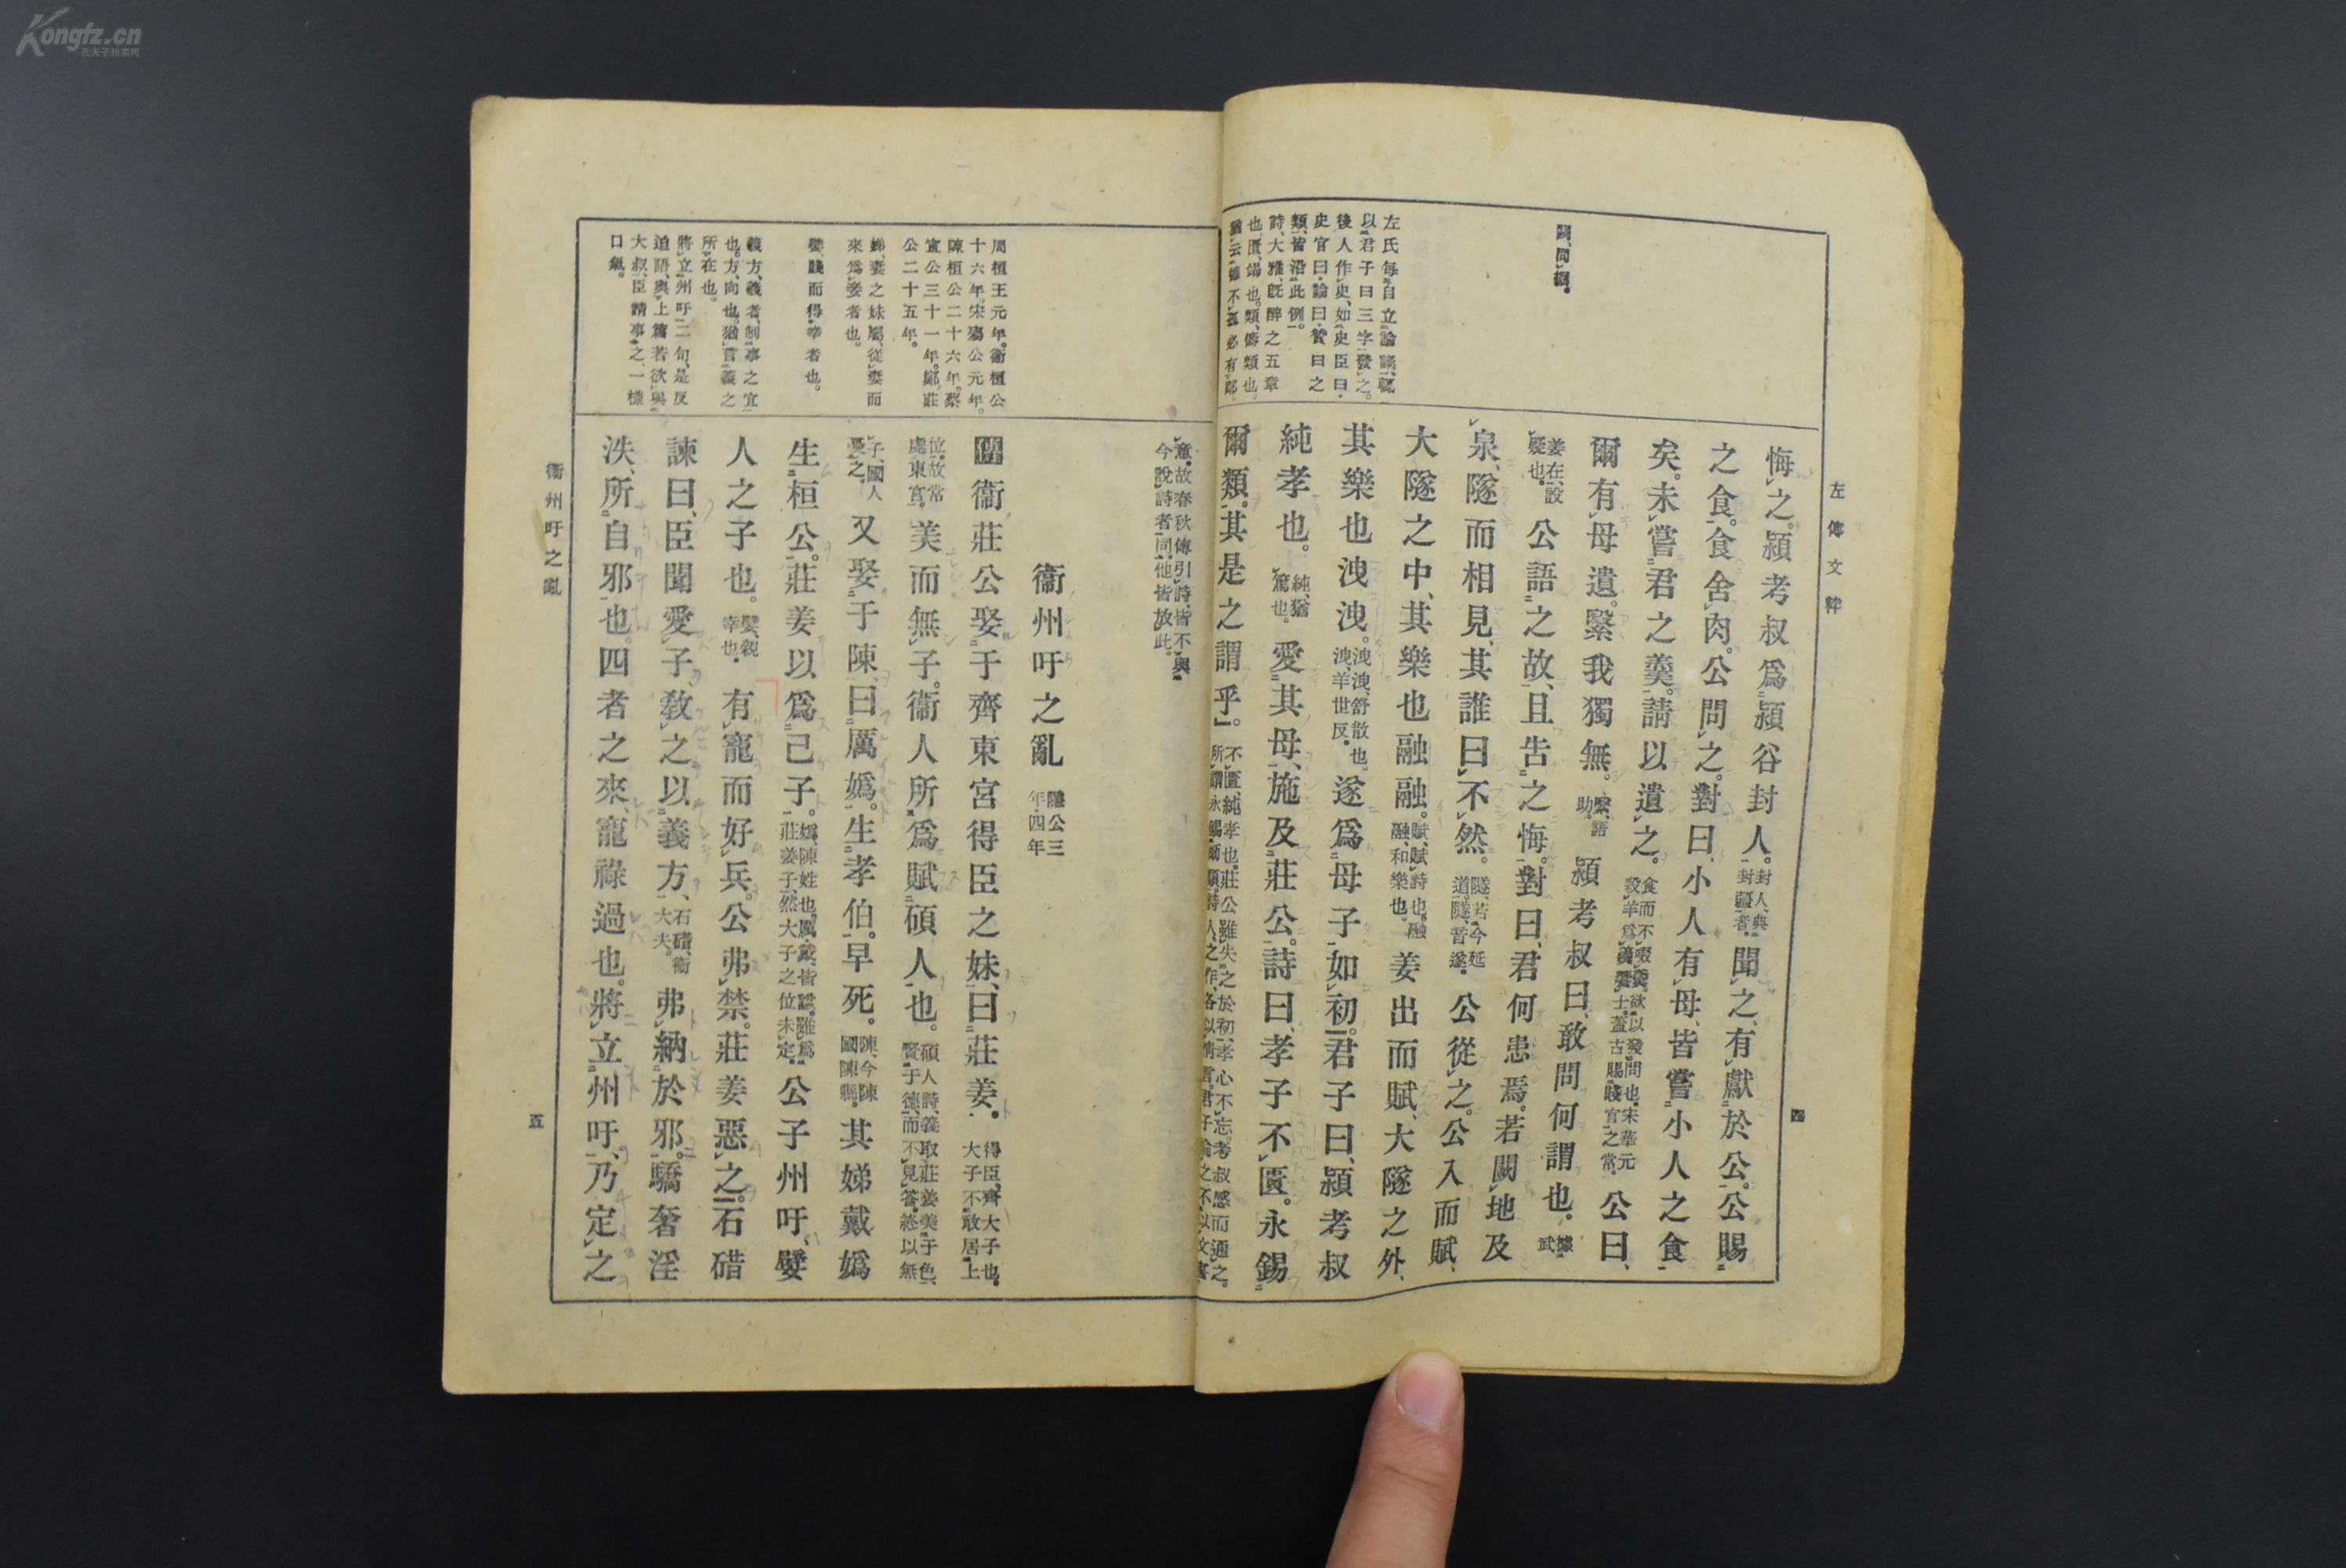 Kongfz.cn
孔夫子拍卖网
左傳文粹
四
左氏每自立論議、輒
以君子曰三字發之。
後人作史、如史臣曰・
史官曰・論曰・贊曰之
類、皆沿此例。
詩、大雅、旣醉之五章
也、匱、竭也。類、儔類也。
猶云德不孤必有鄰。
悔之。潁考叔爲潁谷封人。封人、典封疆者。聞之、有獻於公。公賜
之食。食舍肉。公問之。對曰、小人有母、皆嘗小人之食
矣。未嘗君之羹。請以遺之。食而不啜羹、欲以發問也。宋華元殺羊爲羹饗士、蓋古賜賤官之常。公曰、
爾有母遺。繄我獨無。繄、語助。潁考叔曰、敢問何謂也。據武
姜在、設疑也。公語之故、且吿之悔。對曰、君何患焉。若闕地及
泉、隧而相見、其誰曰不然。隧、若今延道。隧、音遂。公從之。公入而賦、
大隧之中、其樂也融融。賦、賦詩也。融融、和樂也。姜出而賦、大隧之外、
其樂也洩洩。洩洩、舒散也。洩、羊世反。遂爲母子如初。君子曰、潁考叔
純孝也。純、猶篤也。愛其母、施及莊公。詩曰、孝子不匱。永錫
爾類。其是之謂乎。不匱、純孝也。莊公雖失之於初、孝心不忘。考叔感而通之。所謂永錫爾類、詩人之作、各以情言。君子論之、不以文害
意。故春秋傳引詩、皆不與今說詩者同。他皆放此。
周桓王元年。衞桓公
十六年。宋殤公元年。
陳桓公二十六年。蔡
宣公三十一年。鄭莊
公二十五年。
娣、妻之妹屬、從妻而
來爲妾者也。
嬖、賤而得幸者也。
義方、義者、制事之宜
也。方、向也。猶言義之
所在也。
將立州吁二句、是反
道語、與上篇若欲與
大叔、臣請事之一樣
口氣。
衞州吁之亂 隱公三年・四年
傳衞莊公娶于齊東宮得臣之妹、曰莊姜。得臣、齊大子也。大子不敢居上
位。故常處東宮。美而無子。衞人所爲賦碩人也。碩人詩、義取莊姜美于色、賢于德、而不見答。終以無
子、國人憂之。又娶于陳、曰厲嬀。生孝伯。早死。陳、今陳國陳縣。其娣戴嬀
生桓公。莊姜以爲己子。嬀、陳姓也。厲・戴、皆謚。雖爲莊姜子、然大子之位未定。公子州吁、嬖
人之子也。嬖、親幸也。有寵而好兵。公弗禁。莊姜惡之。石碏
諫曰、臣聞愛子、敎之以義方、石碏、衞大夫。弗納於邪。驕奢淫
泆、所自邪也。四者之來、寵祿過也。將立州吁、乃定之
衞州吁之亂
五